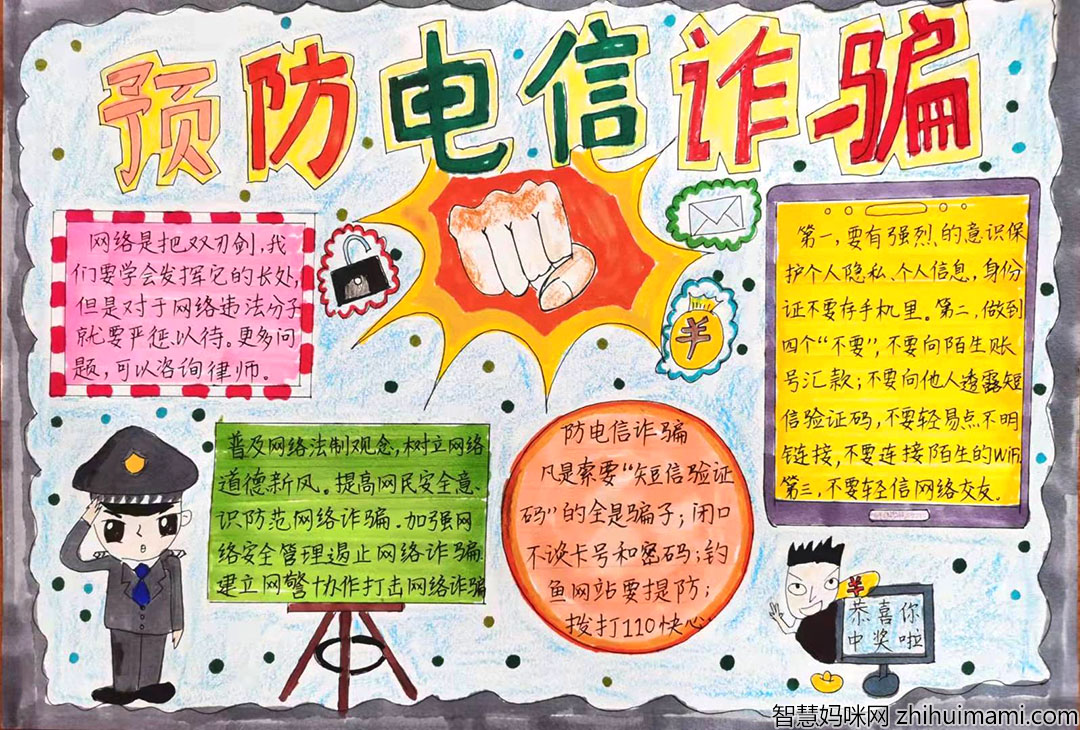 预防电信诈骗
网络是把双刃剑,我
们要学会发挥它的长处,
但是对于网络违法分子
就要严惩以待。更多问
题,可以咨询律师。
第一,要有强烈的意识保
护个人隐私、个人信息,身份
证不要存手机里。第二,做到
四个“不要”,不要向陌生账
号汇款;不要向他人透露短
信验证码,不要轻易点不明
链接,不要连接陌生的WiFi
第三,不要轻信网络交友.
普及网络法制观念,树立网络
道德新风。提高网民安全意
识防范网络诈骗.加强网
络安全管理遏止网络诈骗
建立网警协作打击网络诈骗
防电信诈骗
凡是索要“短信验证
码”的全是骗子;闭口
不谈卡号和密码;钓
鱼网站要提防;
拨打110快心.
恭喜你
中奖啦
智慧妈咪网 zhihuimami.com